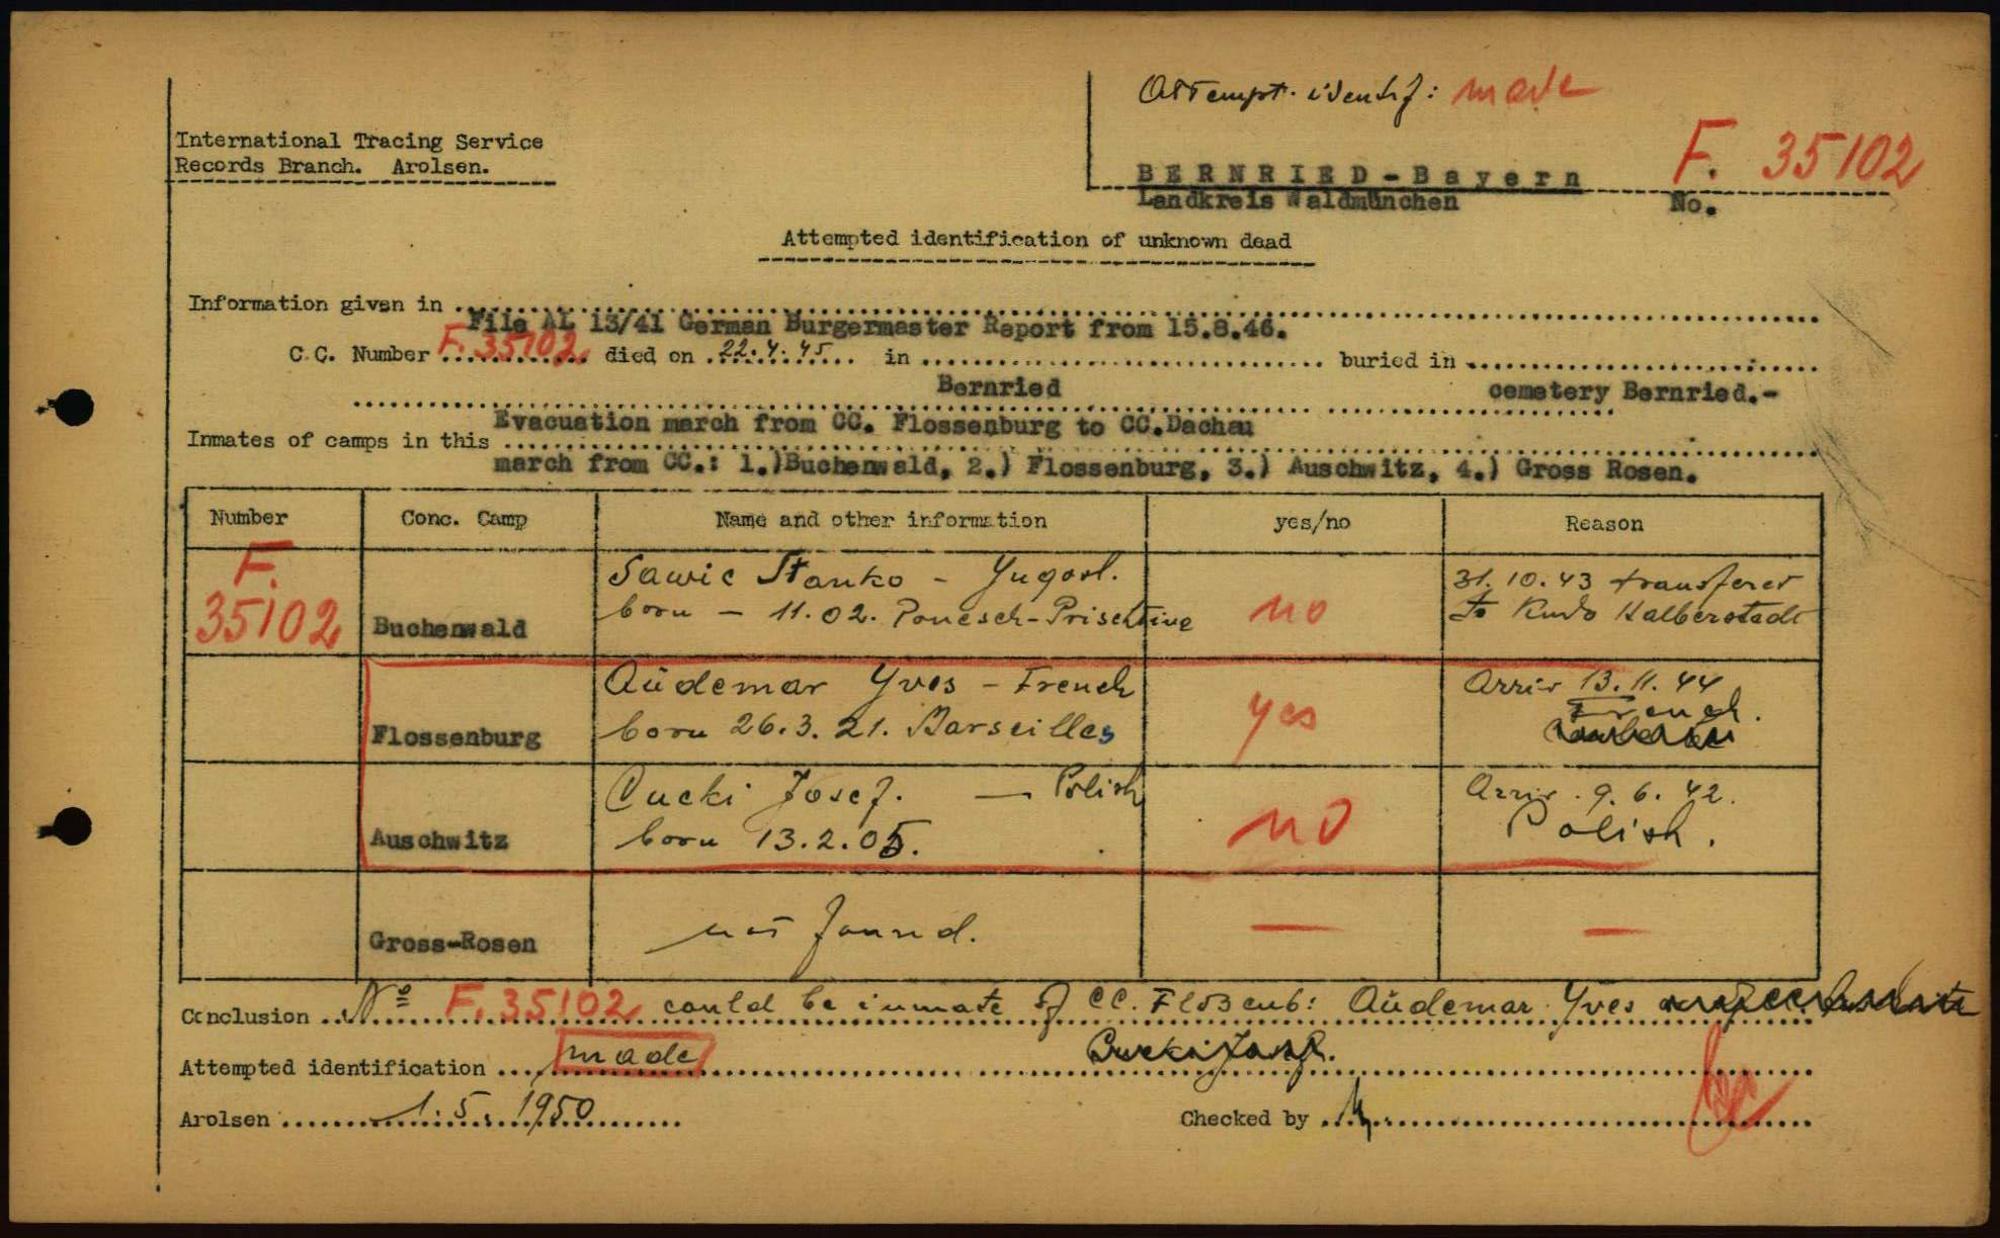 Attempt. identif: made
International Tracing Service
Records Branch. Arolsen.
BERNRIED-Bayern
F. 35102
Landkreis Waldmünchen
No.
Attempted identification of unknown dead
Information given in
File AL 13/41 German Burgermaster Report from 15.8.46.
C.C. Number F. 35102 died on 22.4.45 in buried in
Bernried cemetery Bernried.-
Evacuation march from CC. Flossenburg to CC.Dachau
Inmates of camps in this
march from CC.: 1.)Buchenwald, 2.) Flossenburg, 3.) Auschwitz, 4.) Gross Rosen.
Number Conc. Camp Name and other information yes/no Reason
F. 35102
Buchenwald
Sawic Stanko - Yugosl.
born - 11.02. Ponesch-Prischtine
no
31.10.43 transferet
to Kmdo Halberstadt
Flossenburg
Aüdemar Yves - French
born 26.3.21. Marseilles
yes
Arriv 13.11.44
French.
Auschwitz
Cucki Josef. - Polish
born 13.2.05.
no
Arriv. 9.6.42.
Polish.
Gross-Rosen
not found.
—
—
Conclusion No F. 35102 could be inmate of CC. Flossenb: Aüdemar Yves
Attempted identification made
Arolsen 1.5.1950
Checked by